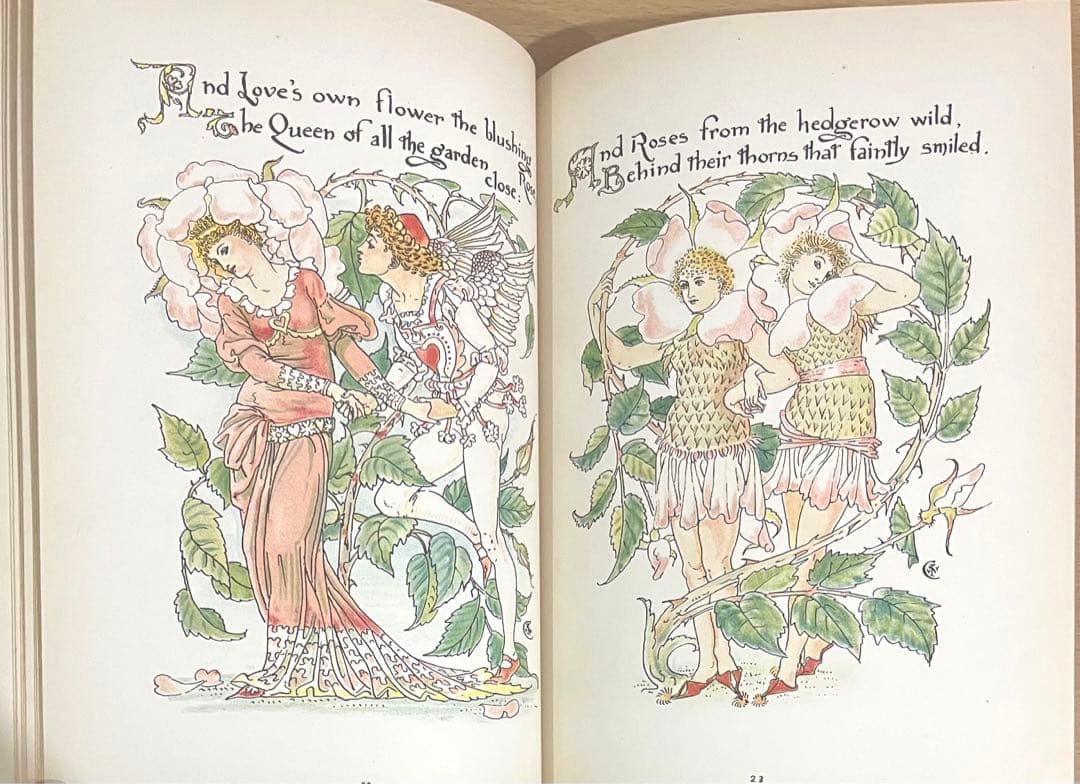 And Love's own flower the blushing Rose
The Queen of all the garden close.
And Roses from the hedgerow wild,
Behind their thorns that faintly smiled.
23